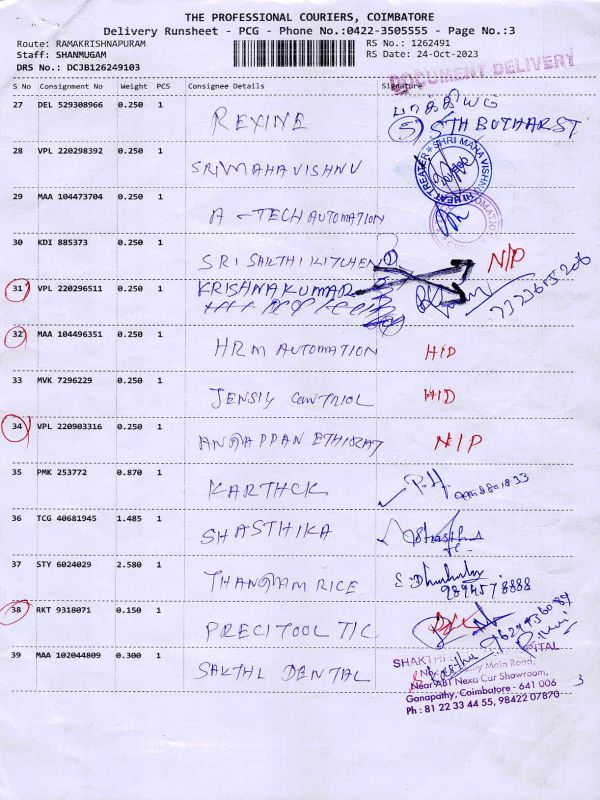 THE PROFESSIONAL COURIERS, COIMBATORE
Delivery Runsheet - PCG - Phone No.:0422-3505555 - Page No.:3
Route: RAMAKRISHNAPURAM RS No.: 1262491
Staff: SHANMUGAM RS Date: 24-Oct-2023
DRS No.: DCJB126249103
DOCUMENT DELIVERY
S No Consignment No Weight PCS Consignee Details Signature
27 DEL 529308966 0.250 1 REXINE பாக்கியம்
5 5TH BUTHAR ST
28 VPL 220298392 0.250 1 SRI MAHA VISHNU
29 MAA 104473704 0.250 1 A-TECH AUTOMATION
30 KDI 885373 0.250 1 SRI SAKTHI KITCHEN N/P
31 VPL 220296511 0.250 1 KRISHNA KUMAR 7323615206
32 MAA 104496351 0.250 1 HRM AUTOMATION H/D
33 MVK 7296229 0.250 1 JENSIY CONTRIOL H/D
34 VPL 220903316 0.250 1 ANGAPPAN ETHIRAT N/P
35 PMK 253772 0.870 1 KARTHCK
36 TCG 40681945 1.485 1 SHASTHIKA
37 STY 6024029 2.580 1 THANGAM RICE 9894578888
38 RKT 9318071 0.150 1 PRECITOOL TIC
39 MAA 102044809 0.300 1 SAKTHI DENTAL
SHAKTHI
Main Road,
Near ABT Nexa Car Showroom,
Ganapathy, Coimbatore - 641 006
Ph : 81 22 33 44 55, 98422 07870
3